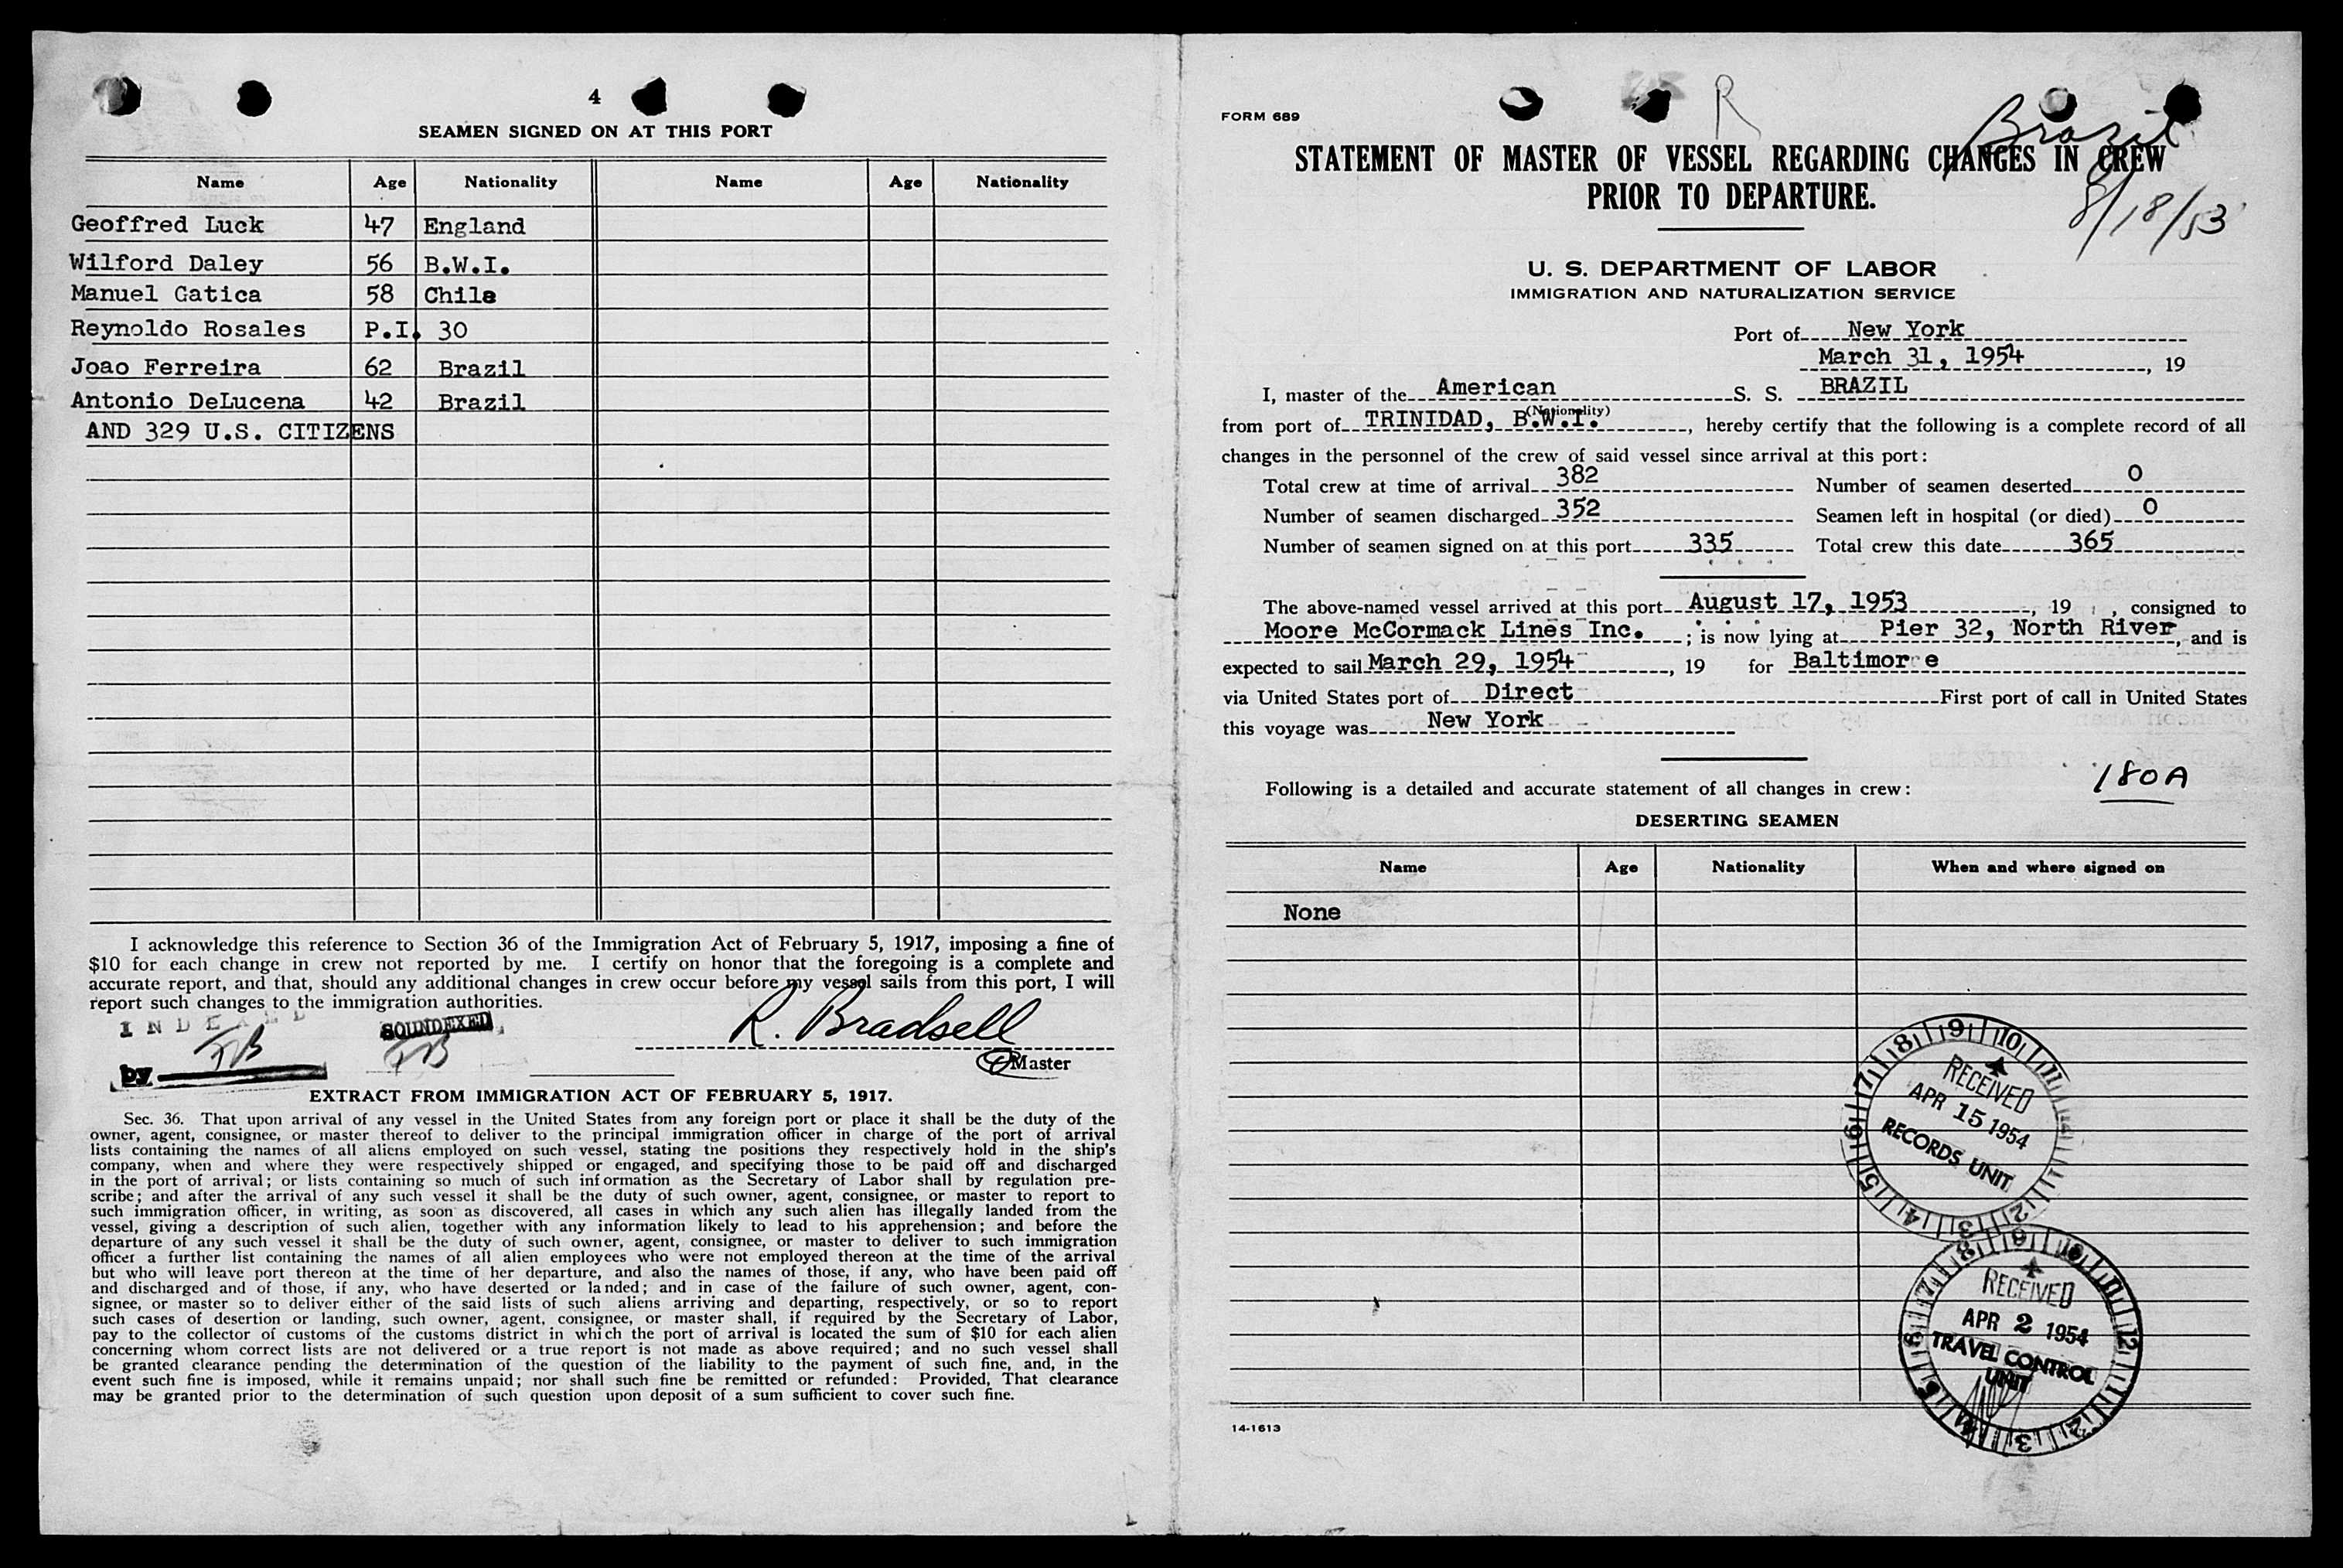 4
SEAMEN SIGNED ON AT THIS PORT
Name Age Nationality Name Age Nationality
Geoffred Luck 47 England
Wilford Daley 56 B.W.I.
Manuel Gatica 58 Chile
Reynoldo Rosales P.I. 30
Joao Ferreira 62 Brazil
Antonio DeLucena 42 Brazil
AND 329 U.S. CITIZENS
I acknowledge this reference to Section 36 of the Immigration Act of February 5, 1917, imposing a fine of
$10 for each change in crew not reported by me. I certify on honor that the foregoing is a complete and
accurate report, and that, should any additional changes in crew occur before my vessel sails from this port, I will
report such changes to the immigration authorities.
INDEXED
SOUNDEXED
R. Bradsell
by
Master
EXTRACT FROM IMMIGRATION ACT OF FEBRUARY 5, 1917.
Sec. 36. That upon arrival of any vessel in the United States from any foreign port or place it shall be the duty of the
owner, agent, consignee, or master thereof to deliver to the principal immigration officer in charge of the port of arrival
lists containing the names of all aliens employed on such vessel, stating the positions they respectively hold in the ship's
company, when and where they were respectively shipped or engaged, and specifying those to be paid off and discharged
in the port of arrival; or lists containing so much of such information as the Secretary of Labor shall by regulation pre-
scribe; and after the arrival of any such vessel it shall be the duty of such owner, agent, consignee, or master to report to
such immigration officer, in writing, as soon as discovered, all cases in which any such alien has illegally landed from the
vessel, giving a description of such alien, together with any information likely to lead to his apprehension; and before the
departure of any such vessel it shall be the duty of such owner, agent, consignee, or master to deliver to such immigration
officer a further list containing the names of all alien employees who were not employed thereon at the time of the arrival
but who will leave port thereon at the time of her departure, and also the names of those, if any, who have been paid off
and discharged and of those, if any, who have deserted or landed; and in case of the failure of such owner, agent, con-
signee, or master so to deliver either of the said lists of such aliens arriving and departing, respectively, or so to report
such cases of desertion or landing, such owner, agent, consignee, or master shall, if required by the Secretary of Labor,
pay to the collector of customs of the customs district in which the port of arrival is located the sum of $10 for each alien
concerning whom correct lists are not delivered or a true report is not made as above required; and no such vessel shall
be granted clearance pending the determination of the question of the liability to the payment of such fine, and, in the
event such fine is imposed, while it remains unpaid; nor shall such fine be remitted or refunded: Provided, That clearance
may be granted prior to the determination of such question upon deposit of a sum sufficient to cover such fine.
FORM 689
R
Brazil
8/18/53
STATEMENT OF MASTER OF VESSEL REGARDING CHANGES IN CREW
PRIOR TO DEPARTURE.
U. S. DEPARTMENT OF LABOR
IMMIGRATION AND NATURALIZATION SERVICE
Port of New York
March 31, 1954, 19
I, master of the American S. S. BRAZIL
(Nationality)
from port of TRINIDAD, B.W.I., hereby certify that the following is a complete record of all
changes in the personnel of the crew of said vessel since arrival at this port:
Total crew at time of arrival 382 Number of seamen deserted 0
Number of seamen discharged 352 Seamen left in hospital (or died) 0
Number of seamen signed on at this port 335 Total crew this date 365
The above-named vessel arrived at this port August 17, 1953, 19 , consigned to
Moore McCormack Lines Inc. ; is now lying at Pier 32, North River, and is
expected to sail March 29, 1954, 19 for Baltimore
via United States port of Direct First port of call in United States
this voyage was New York
180A
Following is a detailed and accurate statement of all changes in crew:
DESERTING SEAMEN
Name Age Nationality When and where signed on
None
RECEIVED
APR 15 1954
RECORDS UNIT
RECEIVED
APR 2 1954
TRAVEL CONTROL
UNIT
14-1613